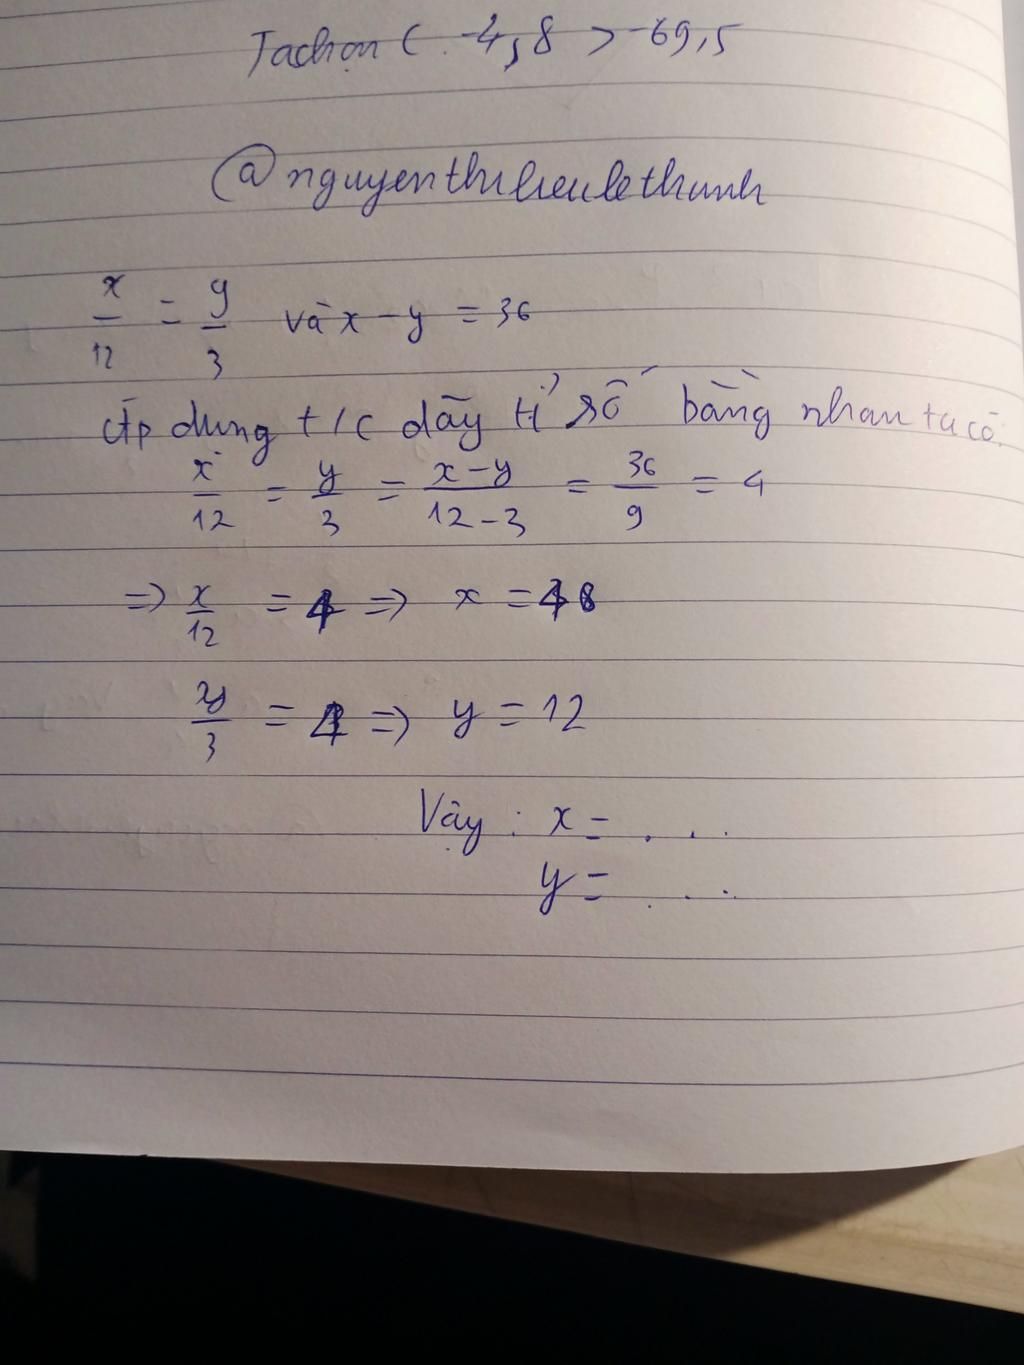 Ta chọn C. -4,8 > -69,5
@nguyenthihieulethanh
x/12 = y/3 và x - y = 36
Áp dụng t/c dãy tỉ số bằng nhau ta có:
x/12 = y/3 = x-y/12-3 = 36/9 = 4
=> x/12 = 4 => x = 48
y/3 = 4 => y = 12
Vậy : x = . . .
y = . . .